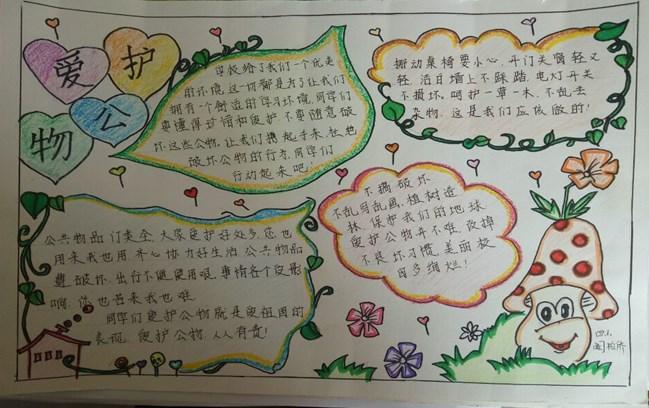 爱护
公
物
学校给了我们一个优美
的环境,这一切都是为了让我们
拥有一个舒适的学习环境,同学们
要懂得珍惜和爱护,不要随意破
坏这些公物,让我们携起手来,杜绝
破坏公物的行为,同学们
行动起来吧!
搬动桌椅要小心,开门关窗轻又
轻,洁白墙上不踩踏,电灯开关
不损坏。呵护一草一木,不乱丢
杂物,这是我们应该做的!
公共物品,门类全,大家爱护好处多,您也
用来我也用,齐心协力好生活,公共物品
遭破坏,出行不便受用艰,事情各个没形
啊,你也苦来我也难。
同学们爱护公物就是爱祖国的
表现,爱护公物,人人有责!
不搞破坏
不乱写乱画,植树造
林,保护我们的地球
爱护公物并不难,改掉
不良坏习惯,美丽校
园多绚烂!
四.1.